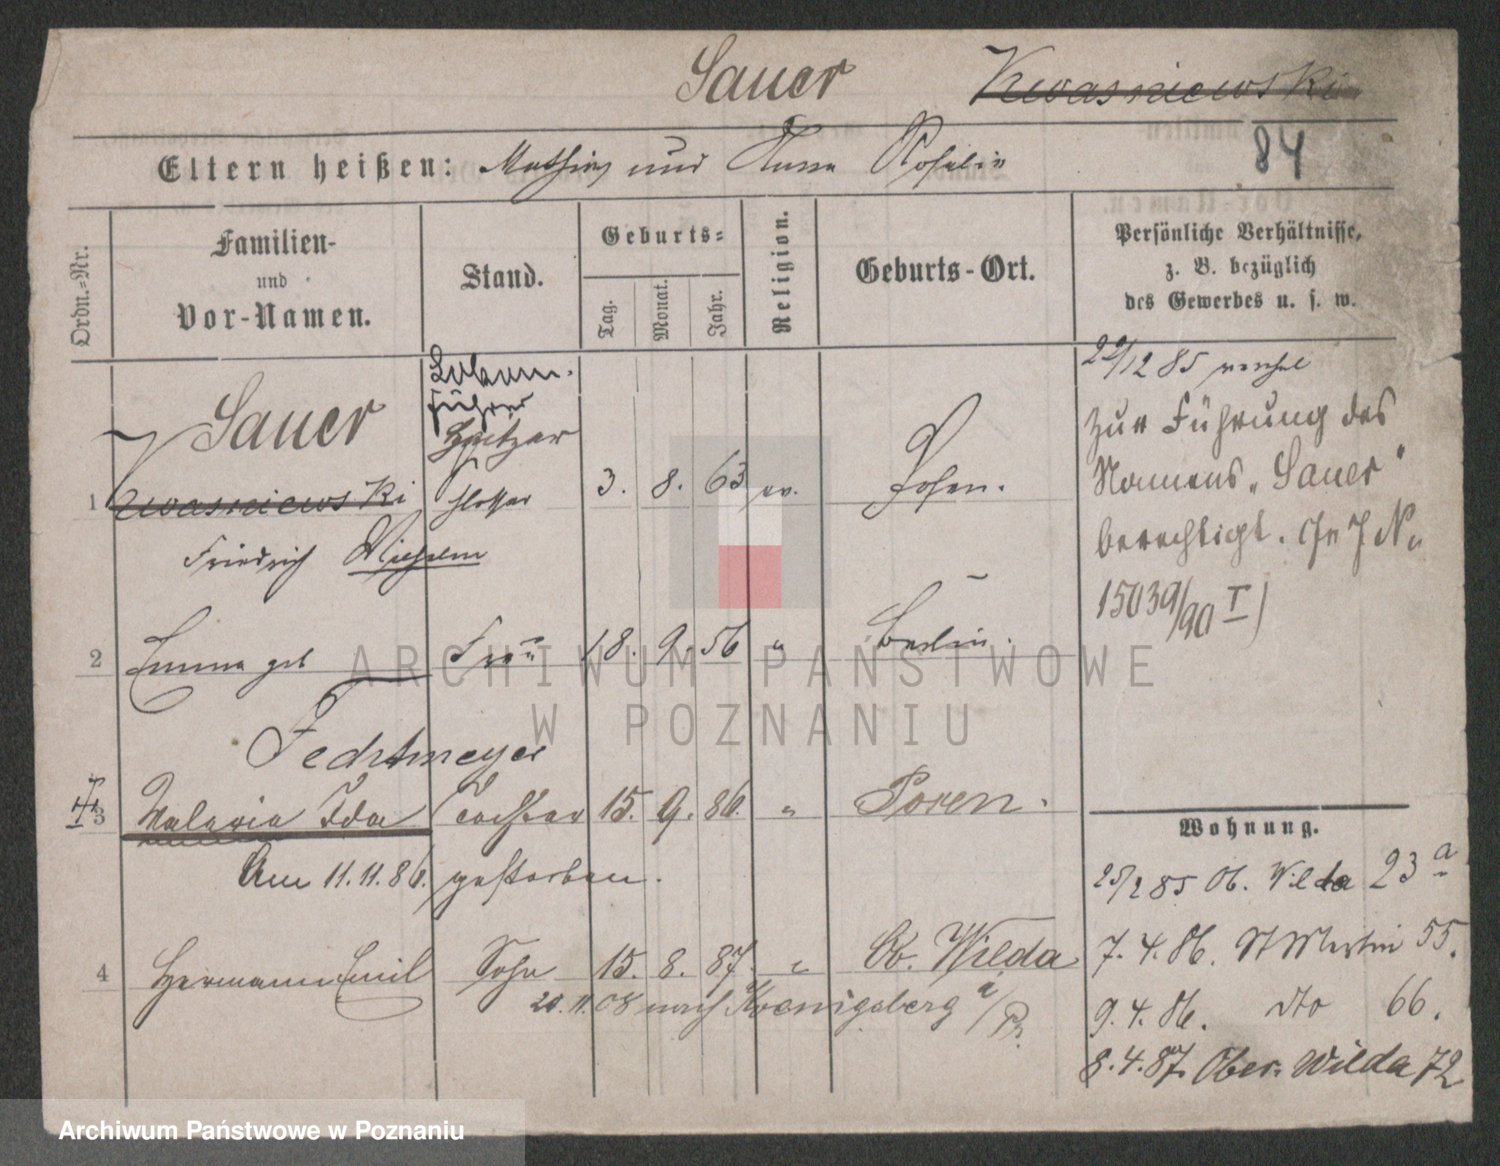 Sauer Kwasniewski
84
Eltern heißen: Mathias und Anna Rosalie
Ordn.-Nr.
Familien-
und
Vor-Namen.
Stand.
Geburts-
Tag.
Monat.
Jahr.
Religion.
Geburts-Ort.
Persönliche Verhältnisse,
z. B. bezüglich
des Gewerbes u. s. w.
Sauer
Lokom.
führer
Heitzer
1 Kwasniewski Schlosser 3. 8. 63 ev. Posen.
Friedrich Wilhelm
2 Emma geb Frau 18. 9. 56 " Berlin.
Fechtmeyer
3 Valeria Ida Tochter 15. 9. 86. " Posen.
Am 11.11.86. gestorben.
4 Hermann Emil Sohn 15. 8. 87. " Ob. Wilda
20.11.08 nach Koenigsberg a/Pr.
12 85
zur Führung des
Namens „Sauer"
berechtigt. (J N
15039/90 I)
Wohnung.
25/2 85 Ob. Wilda 23a
7. 4. 86. St Martin 55.
9. 4. 86. dto 66.
8. 4. 87. Ober-Wilda 72
ARCHIWUM PAŃSTWOWE
W POZNANIU
Archiwum Państwowe w Poznaniu